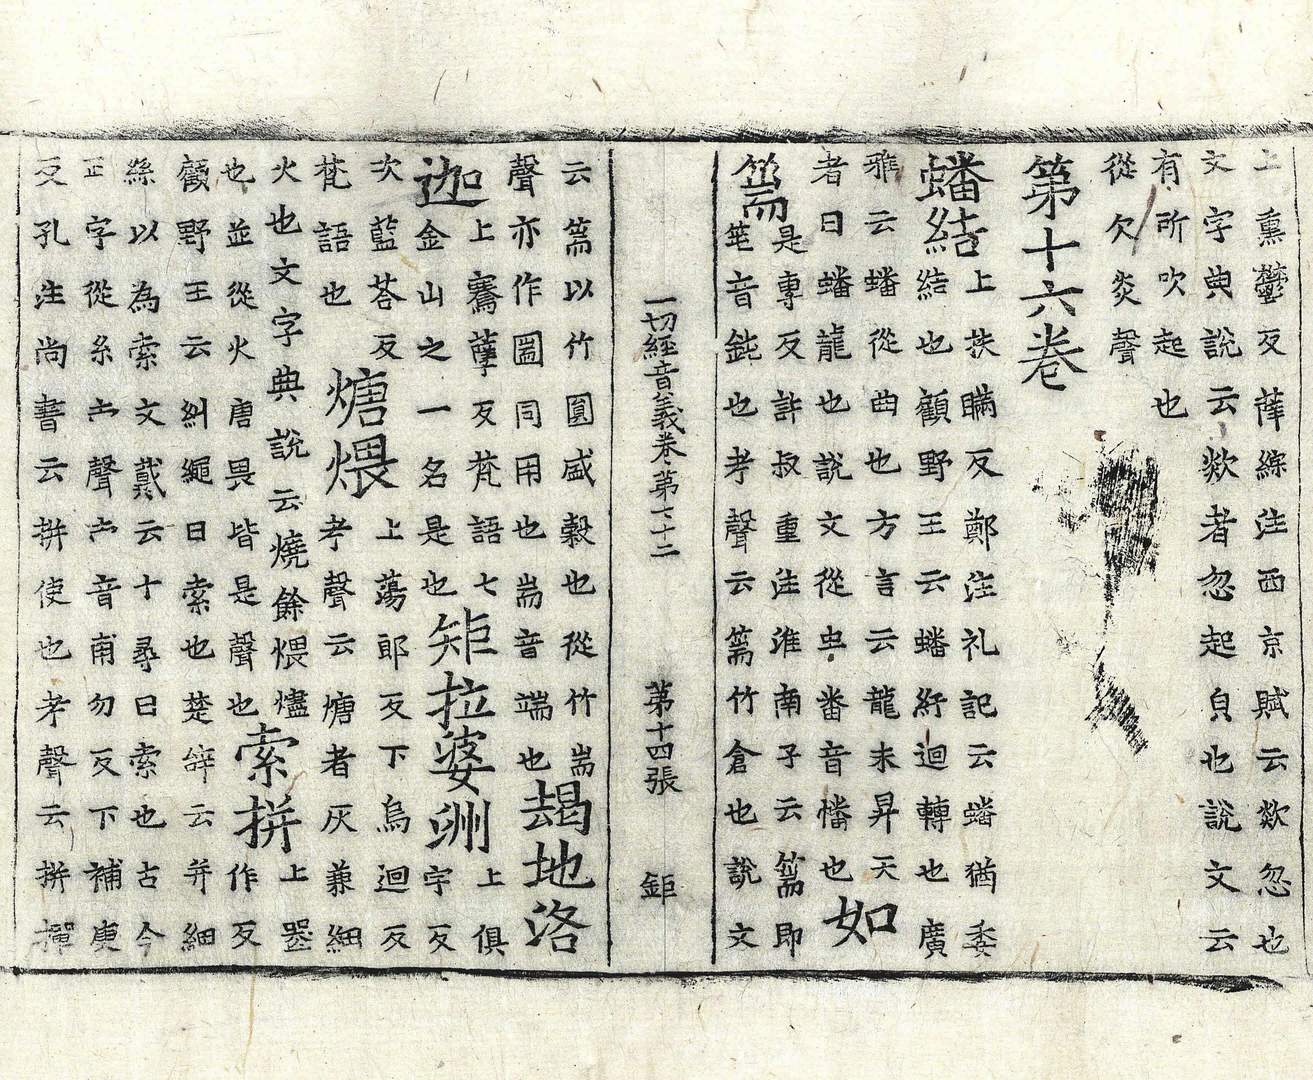 上熏鬱反薛綜注西京賦云欻忽也
文字典說云欻者忽起皃也說文云
有所吹起也
從欠炎聲
第十六卷
蟠結
上扶瞞反鄭注礼記云蟠猶委
結也顧野王云蟠紆迴轉也廣
雅云蟠從曲也方言云龍未昇天
者曰蟠龍也說文從虫番音幡也
如篅
是專反許叔重注淮南子云篅即
音鈍也考聲云篅竹倉也說文
一切經音義卷第七十二 第十四張 鉅
云篅以竹圓盛穀也從竹耑
聲亦作圌同用也耑音端也
朅地洛迦
上騫孽反梵語七
金山之一名是也
矩拉婆洲
上俱
字反
次藍荅反
梵語也
煻煨
上蕩郎反下烏迴反
考聲云煻者灰兼細
火也文字典說云燒餘煨燼
也並從火唐畏皆是聲也
索拼
上
作反
顧野王云糾繩曰索也楚辞云并細
絲以為索文戴云十尋曰索也古今
正字從糸聲音甫勿反下補庚
反孔注尚書云拼使也考聲云拼撣